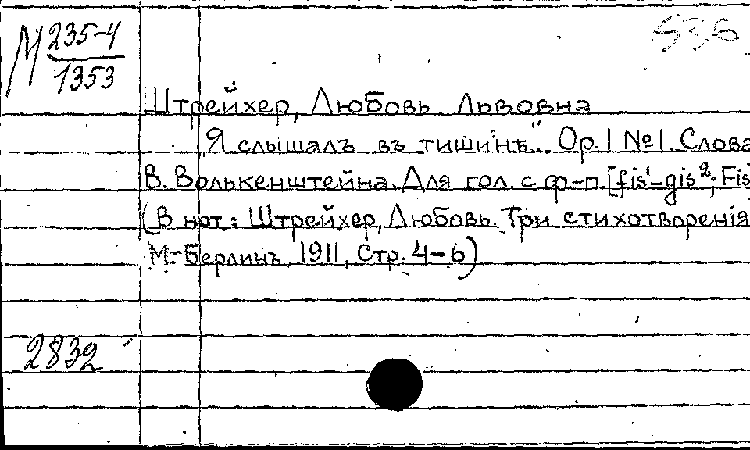 М 235-4
1353
536
Штрейхер, Любовь Львовна
„Я слышалъ въ тишинѣ“. Op. 1 №1. Слова
В. Волькенштейна. Для гол. с ф-п. [fis¹-gis²; Fis
(В нот: Штрейхер, Любовь. Три стихотворенія
М.-Берлинъ, 1911, Стр. 4-6)
2832